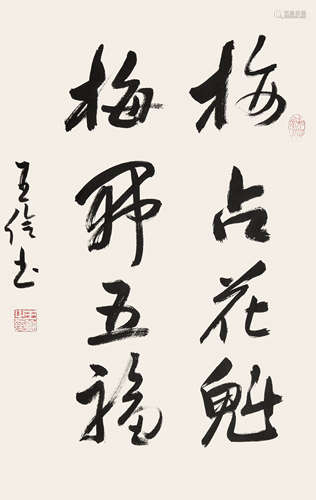 梅占花魁
梅开五福
王伦书